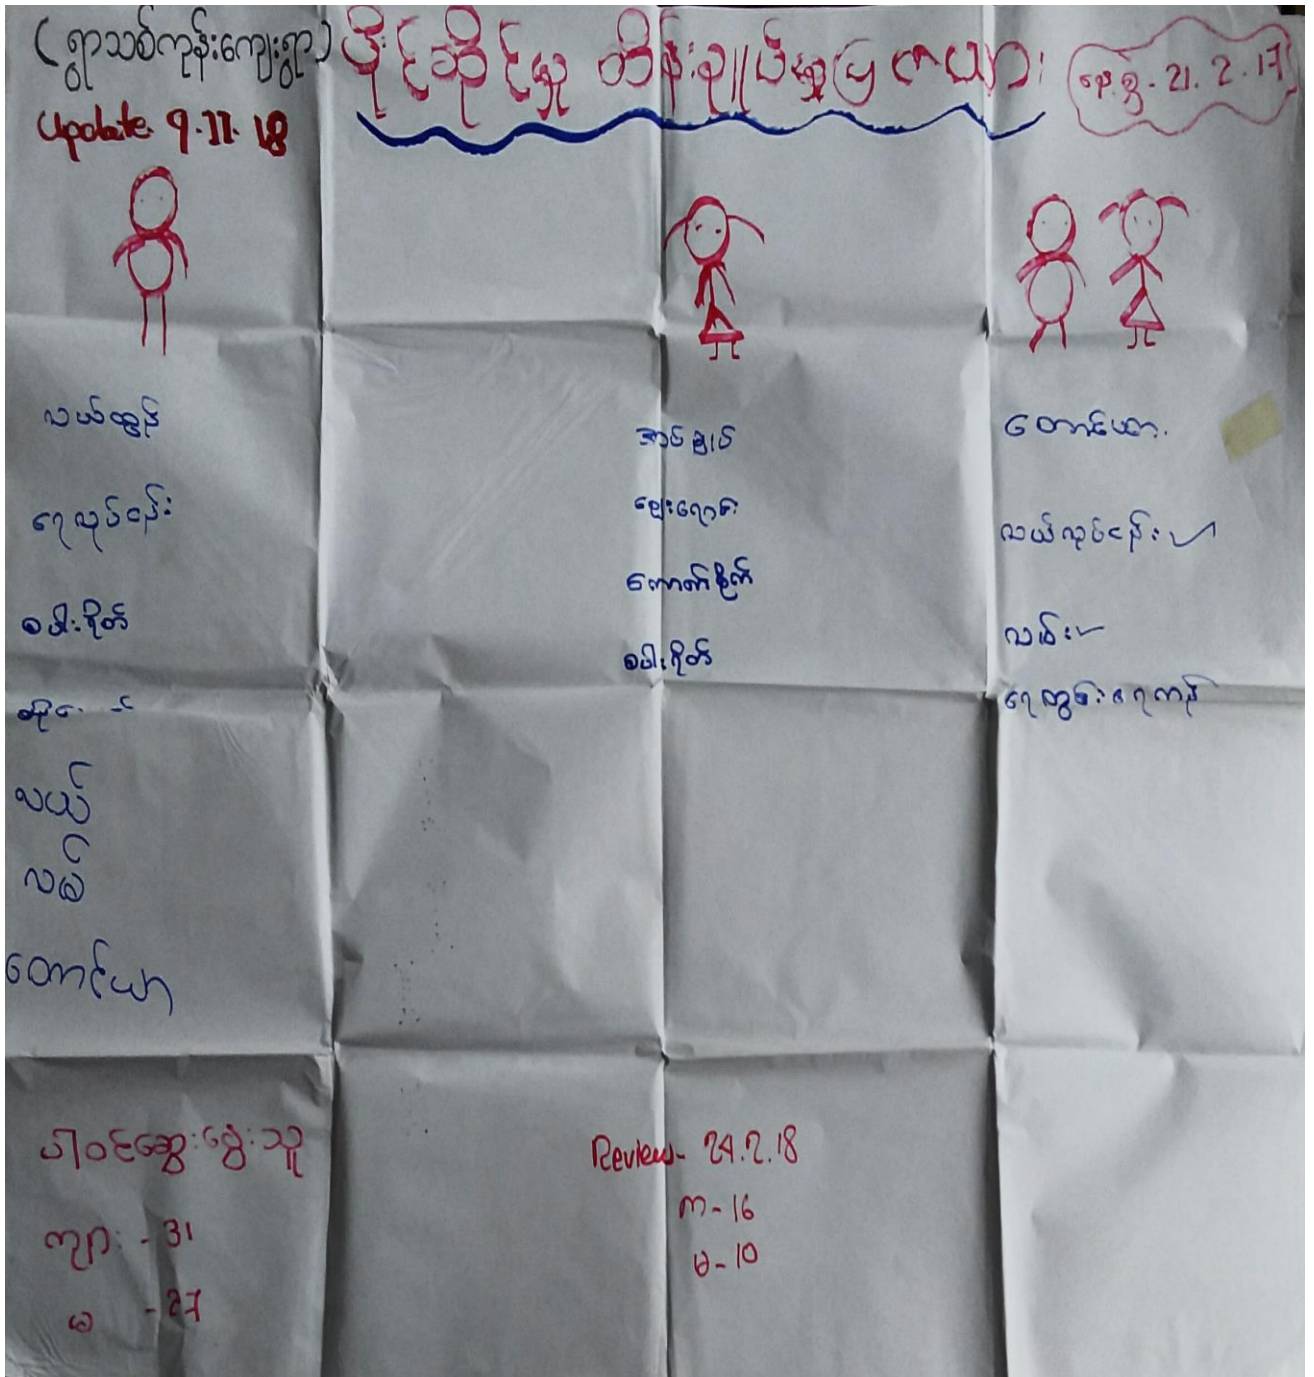 (ရွာသစ်ကုန်းကျေးရွာ) ပိုင်ဆိုင်မှု ထိန်းချုပ်မှုပြဇယား နေ့စွဲ - 21. 2. 17
Update 9.11.18
လယ်ထွန်
ရေလုပ်ငန်း
စပါးရိတ်
လယ်
လမ်း
တောင်ယာ
အပ်ချုပ်
ဈေးရောင်း
ကောက်စိုက်
စပါးရိတ်
တောင်ယာ
လယ်လုပ်ငန်း
လမ်း
ရေတွင်း ရေကန်
ပါဝင်ဆွေးနွေးသူ
ကျား - 31
မ - 27
Review - 24.2.18
က - 16
မ - 10